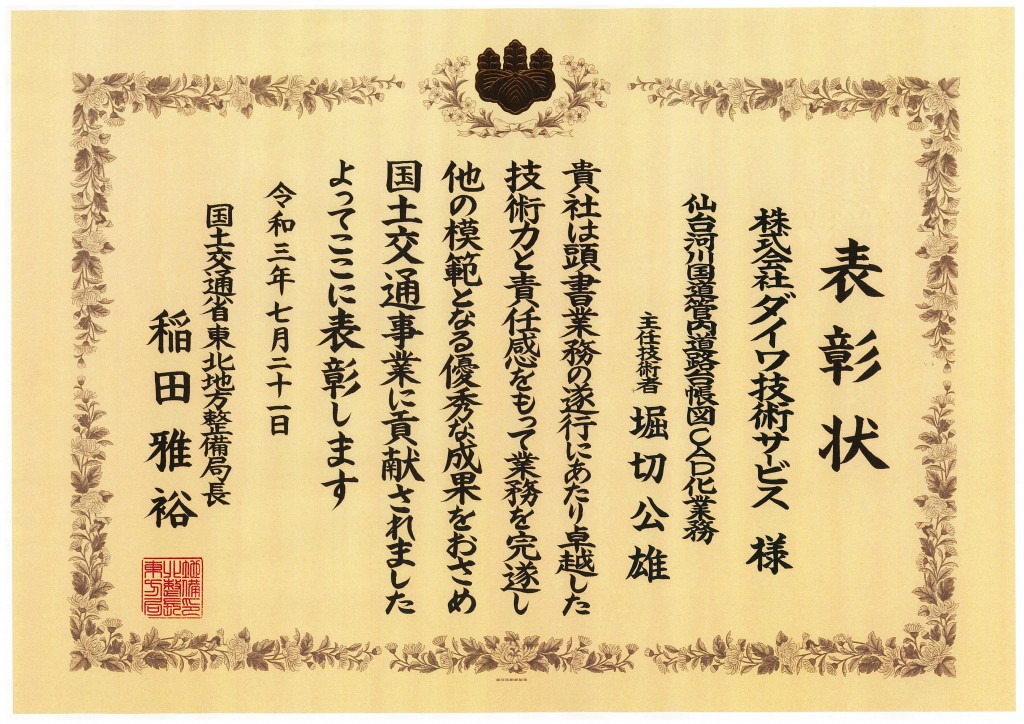 表彰状
株式会社ダイワ技術サービス 様
仙台河川国道管内道路台帳図CAD化業務
主任技術者 堀切公雄
貴社は頭書業務の遂行にあたり卓越した
技術力と責任感をもって業務を完遂し
他の模範となる優秀な成果をおさめ
国土交通事業に貢献されました
よってここに表彰します
令和三年七月二十一日
国土交通省東北地方整備局長
稲田雅裕